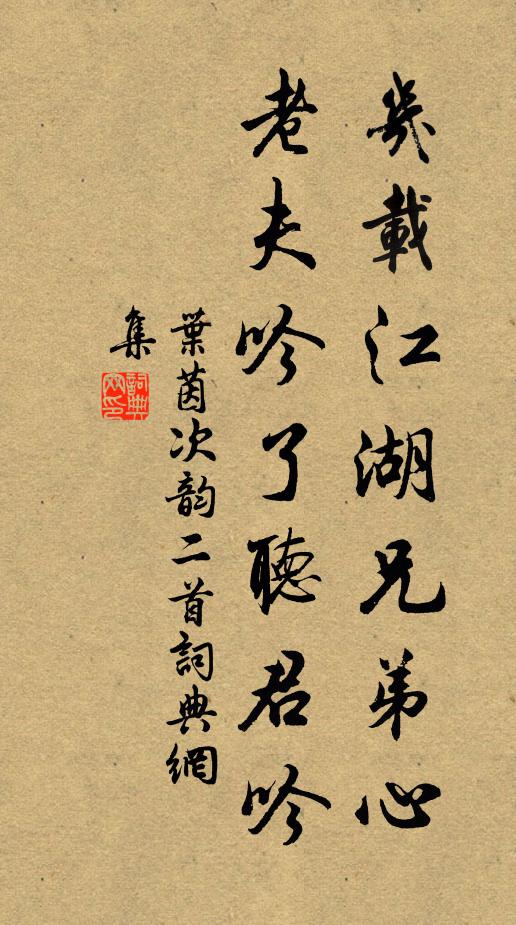 幾載江湖兄弟心
老夫吟了聽君吟
葉茵次韵二首詞典網
集
詞典网印